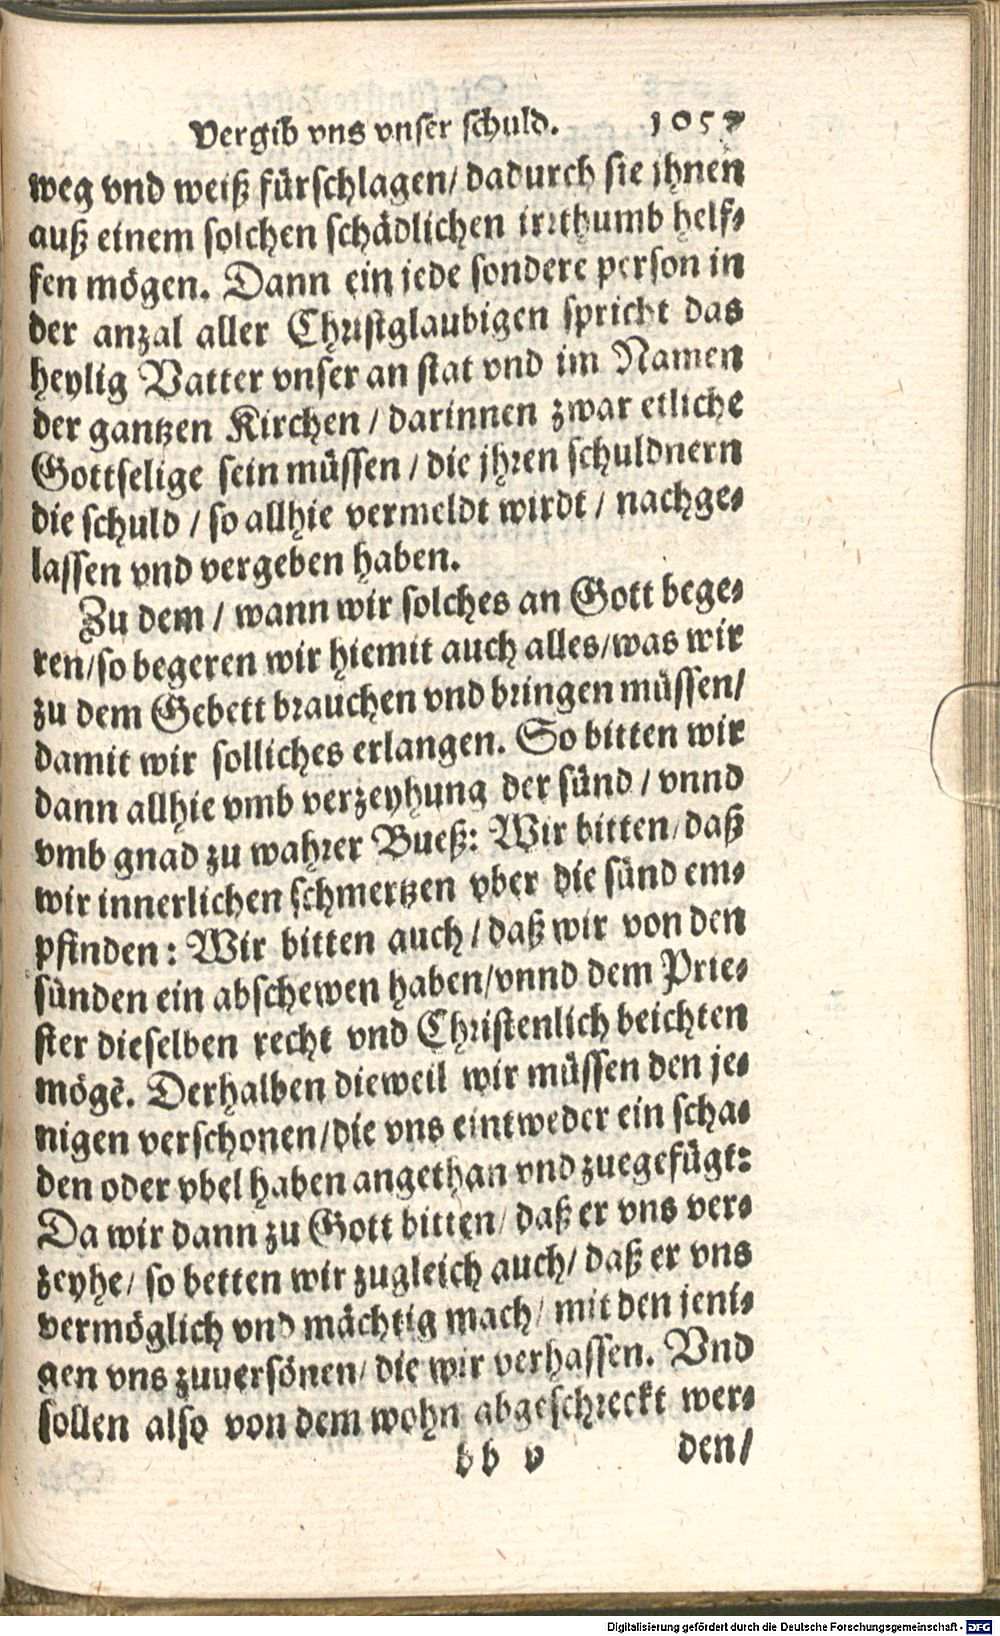 Vergib vns vnser schuld. 1057
weg vnd weiß fürschlagen/ dadurch sie jhnen
auß einem solchen schädlichen irrthumb helf-
fen mögen. Dann ein jede sondere person in
der anzal aller Christglaubigen spricht das
heylig Vatter vnser an stat vnd im Namen
der gantzen Kirchen / darinnen zwar etliche
Gottselige sein müssen / die jhren schuldnern
die schuld / so allhie vermeldt wirdt / nachge-
lassen vnd vergeben haben.
Zu dem / wann wir solches an Gott bege-
ren/so begeren wir hiemit auch alles/was wir
zu dem Gebett brauchen vnd bringen müssen/
damit wir solliches erlangen. So bitten wir
dann allhie vmb verzeyhung der sünd / vnnd
vmb gnad zu wahrer Bueß: Wir bitten/ daß
wir innerlichen schmertzen vber die sünd em-
pfinden: Wir bitten auch / daß wir von den
sünden ein abschewen haben/vnnd dem Prie-
ster dieselben recht vnd Christenlich beichten
mögẽ. Derhalben dieweil wir müssen den je-
nigen verschonen/die vns eintweder ein scha-
den oder vbel haben angethan vnd zuegefügt:
Da wir dann zu Gott bitten/ daß er vns ver-
zeyhe/ so betten wir zugleich auch/ daß er vns
vermöglich vnd mächtig mach/ mit den jeni-
gen vns zuuersönen/ die wir verhassen. Vnd
sollen also von dem wohn abgeschreckt wer-
bb v den/
Digitalisierung gefördert durch die Deutsche Forschungsgemeinschaft - DFG